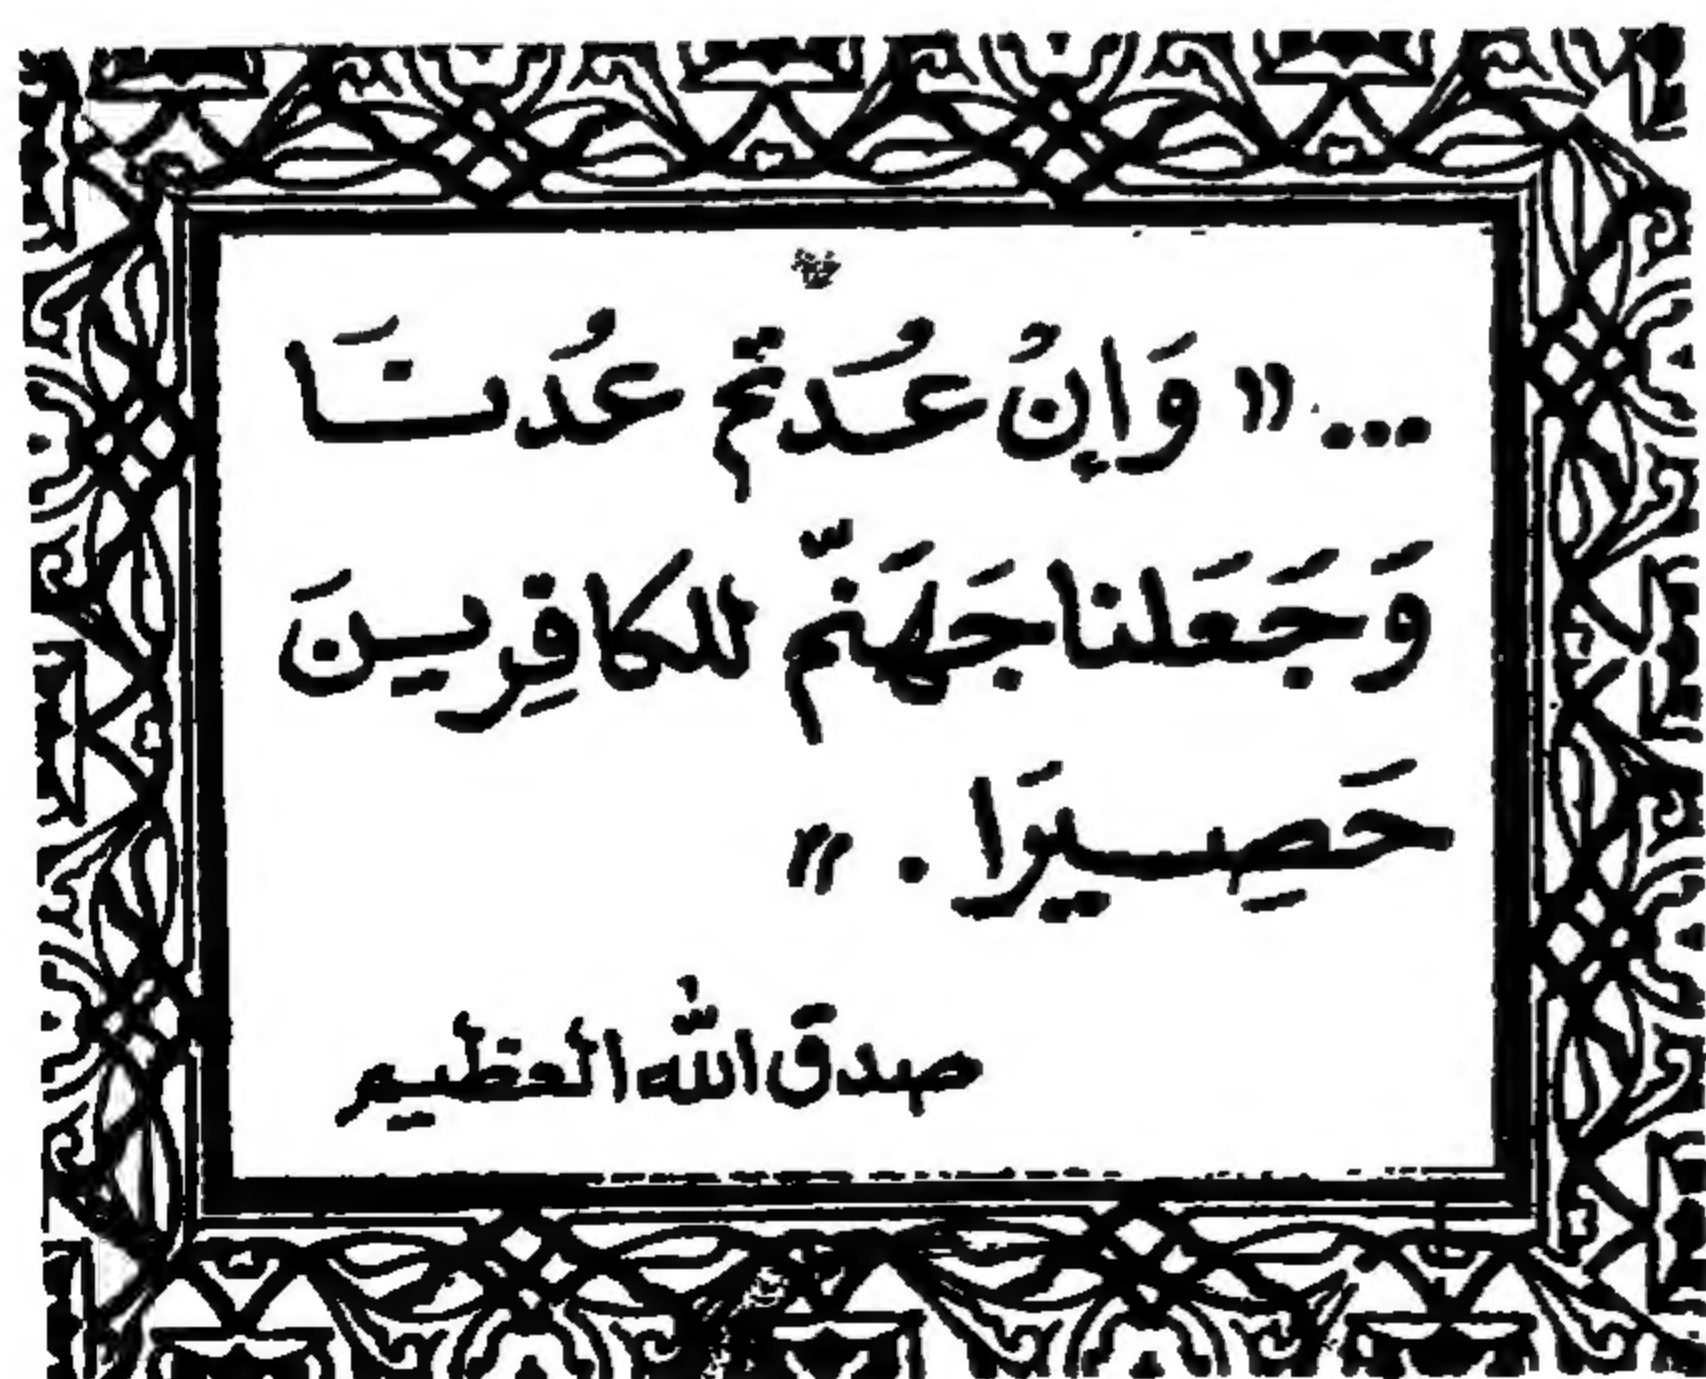 ... « وَإِنْ عُدتُم عُدنَا
وَجَعَلنا جَهَنّم للكافِرِينَ
حَصِيرَا . »
صدق اللّه العظيم